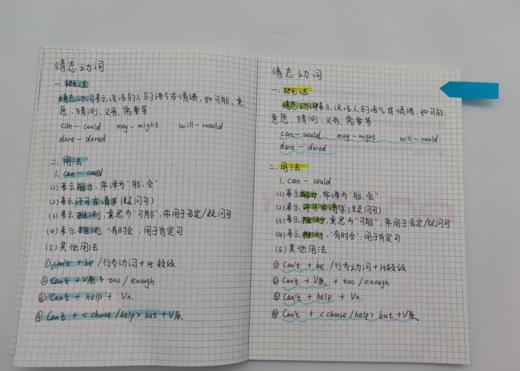 情态动词
一. 概述
情态动词表示说话的人的语气或情绪,如可能、意
愿、猜测、义务、需要等
can - could may - might will - would
dare - dared
二. 用法
1. can - could
(1) 表示能力,常译为"能,会"
(2) 表示许可或请求(疑问句)
(3) 表示推测,意思为"可能",常用于否定/疑问句
(4) 表示推测,"有时会",用于肯定句
(5) 其他用法
① can't + be /行为动词+比较级
② can't + V原 + too / enough
③ Can't + help + Vn.
④ Can't + < choose / help > but + V原
情态动词
一. 概述
情态动词表示说话人的语气或情绪,如可能、
意愿、猜测、义务、需要等
can - could may - might will - would
dare - dared
二. 用法
1. can - could
(1) 表示能力,常译为"能,会"
(2) 表示许可或请求(疑问句)
(3) 表示推测,意思为"可能",常用于否定/疑问句
(4) 表示推测,"有时会",用于肯定句
(5) 其他用法
① Can't + be /行为动词+比较级
② Can't + V原 + too / enough
③ Can't + help + Vn.
④ Can't + < choose / help > but + V原